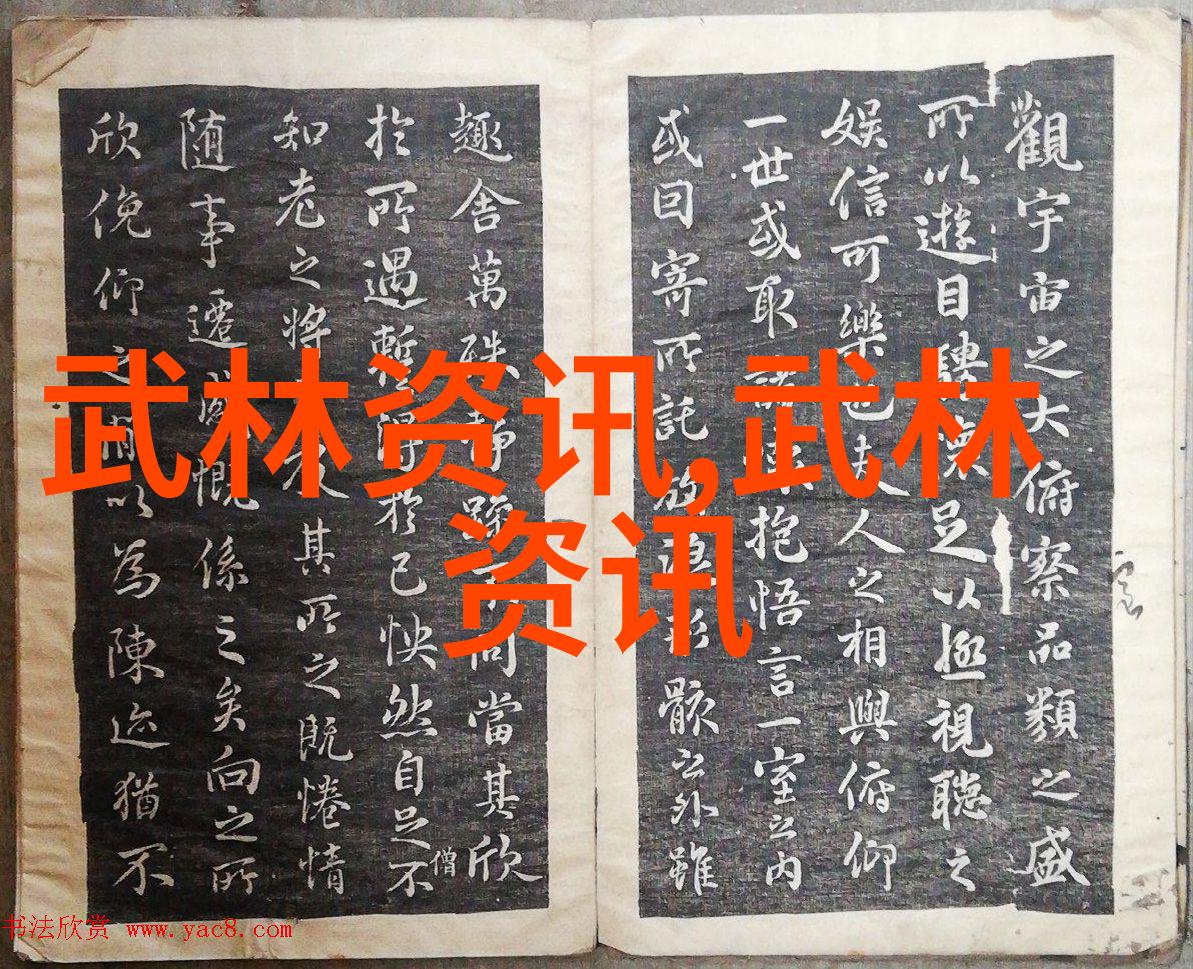 觀宇宙之大俯察品類之盛
所以遊目騁懷足以極視聽之
娛信可樂也夫人之相與俯仰
一世或取諸懷抱悟言一室之内
或因寄所託放浪形骸之外雖
趣舍萬殊靜躁不同當其欣
於所遇暫得於己怏然自足不
僧
知老之將及其所之既惓情
随事遷感慨係之矣向之所
欣俛仰之間以為陳迹猶不
武林资讯,武林
资讯
书法欣赏 www.yac8.com